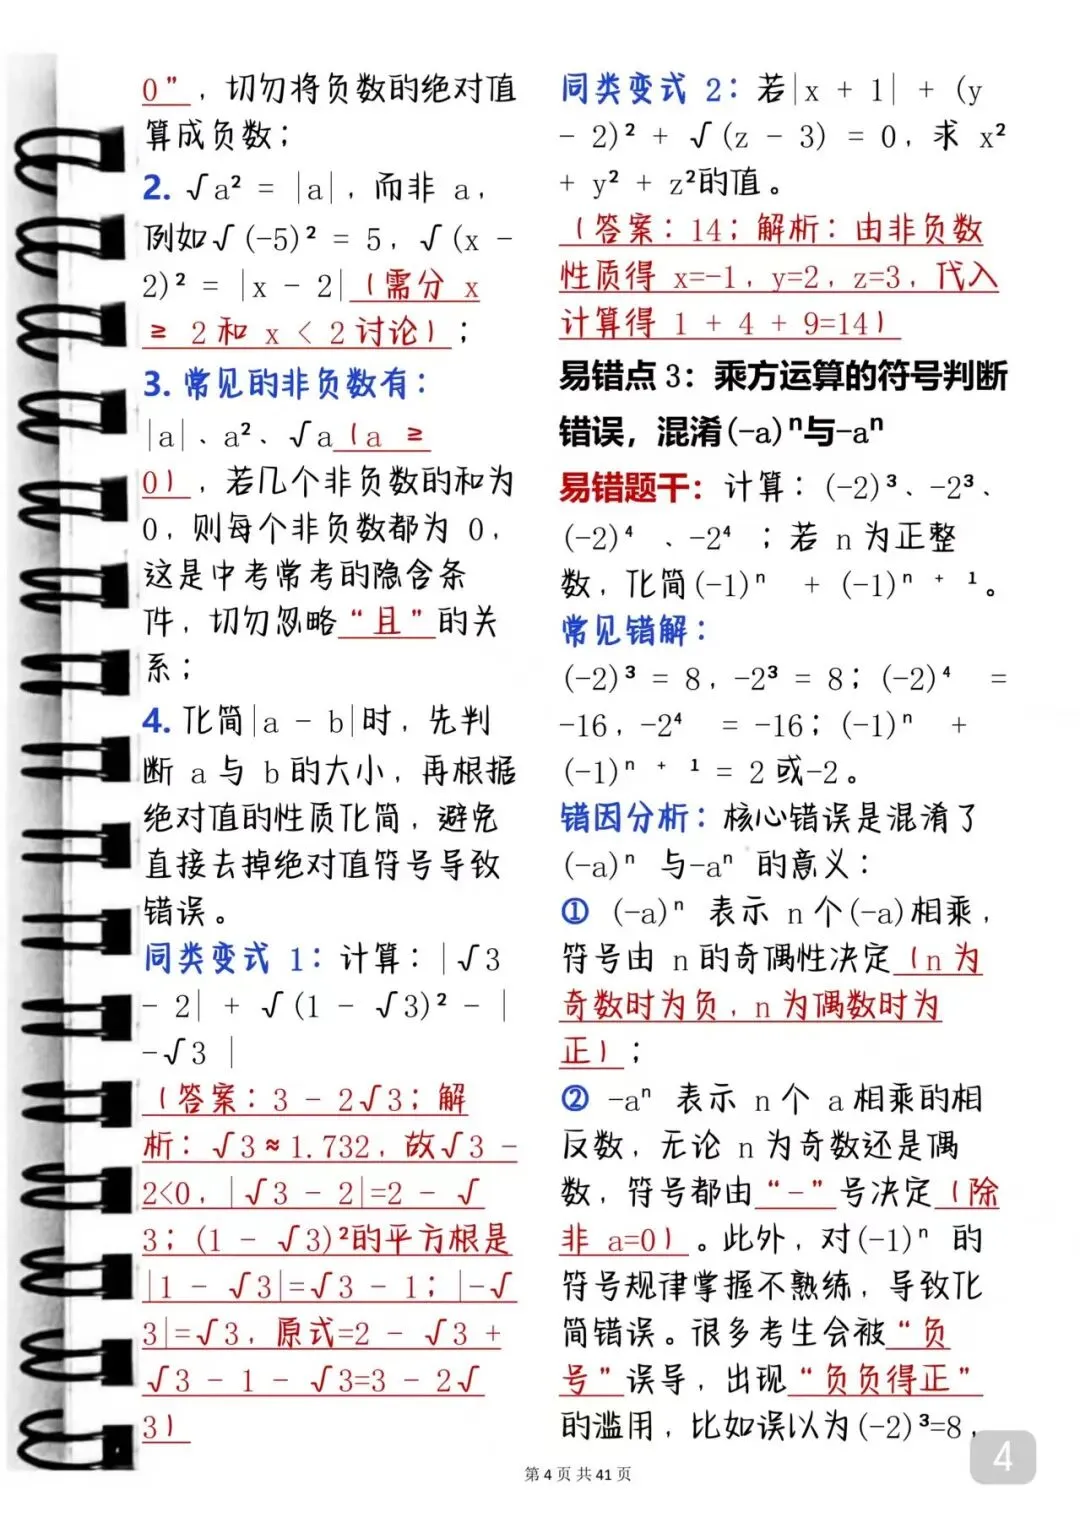 0”，切勿将负数的绝对值
算成负数；
2. √a² = |a|，而非 a，
例如√(-5)² = 5，√(x -
2)² = |x - 2|（需分 x
≥ 2和 x < 2讨论）；
3. 常见的非负数有：
|a|、a²、√a（a ≥
0），若几个非负数的和为
0，则每个非负数都为 0，
这是中考常考的隐含条
件，切勿忽略“且”的关
系；
4. 化简|a - b|时，先判
断 a 与 b 的大小，再根据
绝对值的性质化简，避免
直接去掉绝对值符号导致
错误。
同类变式 1：计算：|√3
- 2| + √(1 - √3)² - |
-√3 |
（答案：3 - 2√3；解
析：√3≈1.732，故√3 -
2<0，|√3 - 2|=2 - √
3；(1 - √3)²的平方根是
|1 - √3|=√3 - 1；|-√
3|=√3，原式=2 - √3 +
√3 - 1 - √3=3 - 2√
3）
同类变式 2：若|x + 1| + (y
- 2)² + √(z - 3) = 0，求 x²
+ y² + z²的值。
（答案：14；解析：由非负数
性质得 x=-1，y=2，z=3，代入
计算得 1 + 4 + 9=14）
易错点 3：乘方运算的符号判断
错误，混淆(-a)ⁿ与-aⁿ
易错题干：计算：(-2)³、-2³、
(-2)⁴ 、-2⁴ ；若 n 为正整
数，化简(-1)ⁿ + (-1)ⁿ ⁺ ¹。
常见错解：
(-2)³ = 8，-2³ = 8；(-2)⁴ =
-16，-2⁴ = -16；(-1)ⁿ +
(-1)ⁿ ⁺ ¹ = 2 或-2。
错因分析：核心错误是混淆了
(-a)ⁿ 与-aⁿ 的意义：
① (-a)ⁿ 表示 n 个(-a)相乘，
符号由 n 的奇偶性决定（n 为
奇数时为负，n 为偶数时为
正）；
② -aⁿ 表示 n 个 a 相乘的相
反数，无论 n 为奇数还是偶
数，符号都由“-”号决定（除
非 a=0）。此外，对(-1)ⁿ 的
符号规律掌握不熟练，导致化
简错误。很多考生会被“负
号”误导，出现“负负得正”
的滥用，比如误以为(-2)³=8，
第 4 页 共 41 页
4